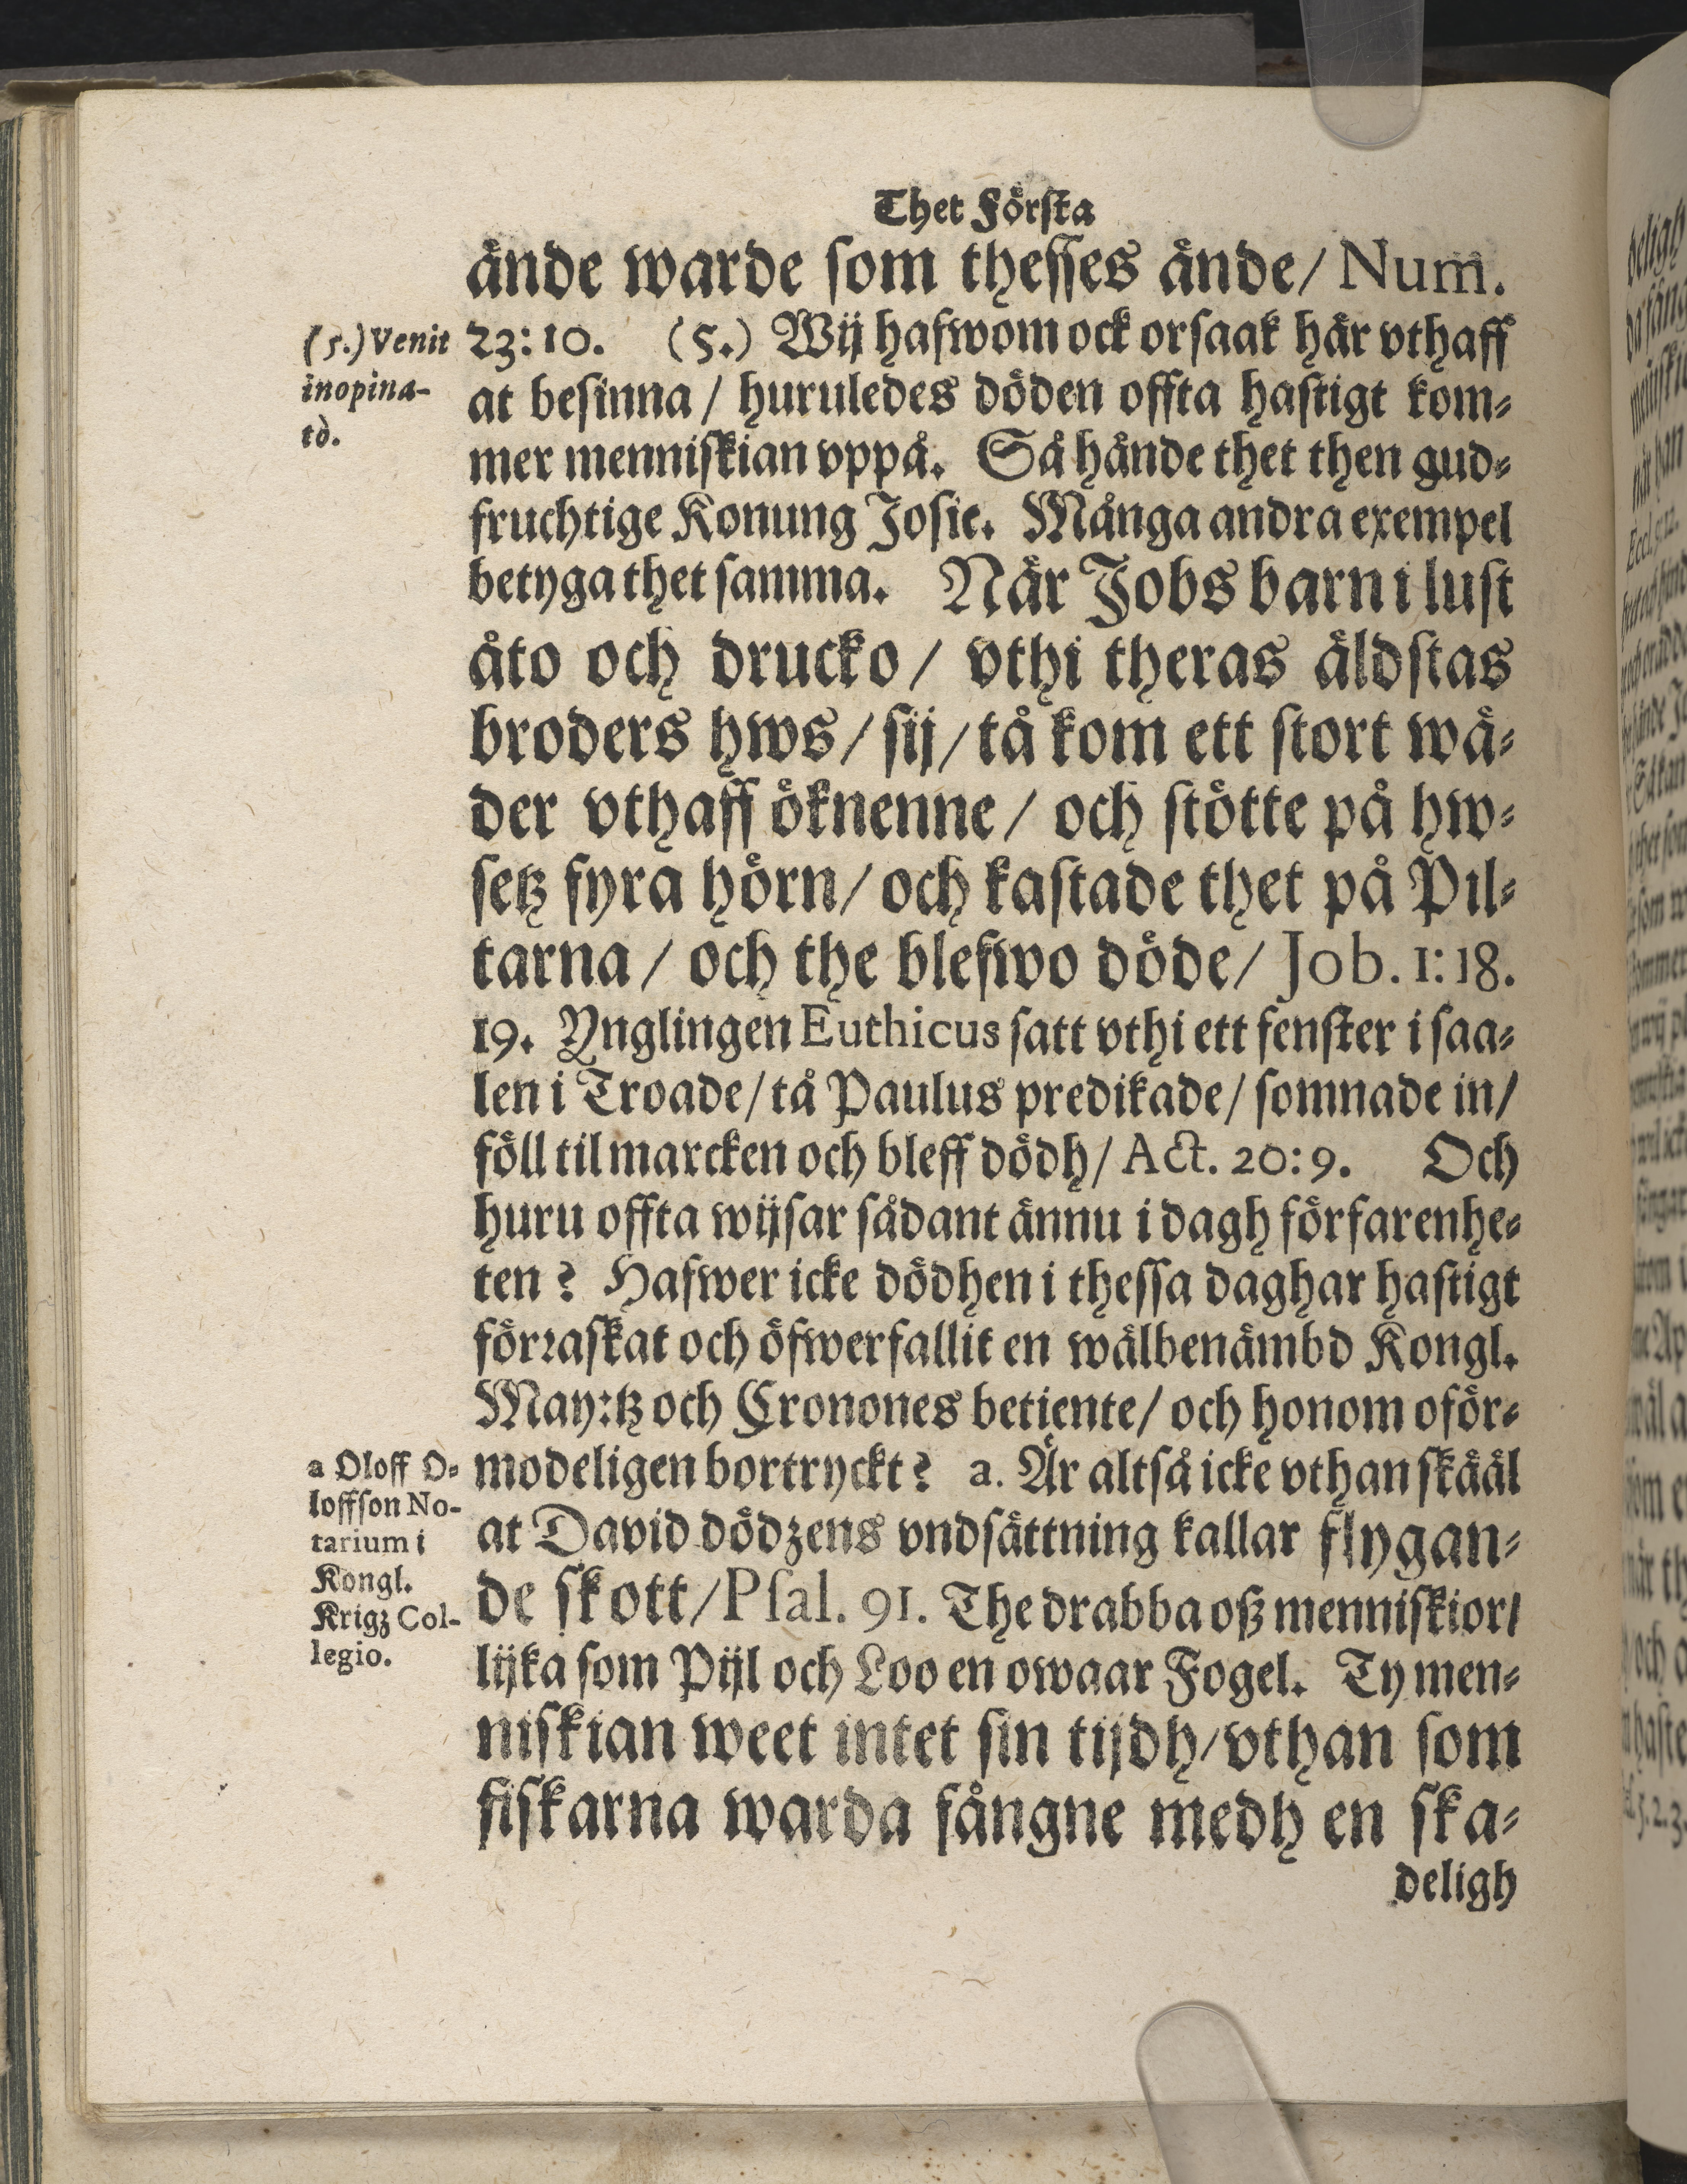 Thet Förſta
ände warde ſom theſſes ände/ Num.
(5.) Venit
inopina-
tò.
23:10. (5.) Wij hafwom ock orſaak här vthaff
at beſinna / huruledes döden offta haſtigt kom⸗
mer menniſkian vppå. Så hände thet then gud⸗
fruchtige Konung Joſie. Många andra exempel
betyga thet ſamma. När Jobs barn i luſt
åto och drucko / vthi theras äldſtas
broders hws / ſij / tå kom ett ſtort wä⸗
der vthaff öknenne / och ſtötte på hw⸗
ſetz fyra hörn/ och kaſtade thet på Pil⸗
tarna / och the blefwo döde/ Job. 1:18.
19. Ynglingen Euthicus ſatt vthi ett fenſter i ſaa⸗
len i Troade/ tå Paulus predikade/ ſomnade in/
föll til marcken och bleff dödh/ Act. 20:9. Och
huru offta wijſar ſådant ännu i dagh förfarenhe⸗
ten? Hafwer icke dödhen i theſſa daghar haſtigt
förꝛaſkat och öfwerfallit en wälbenämbd Kongl.
May:tz och Cronones betiente/ och honom oför⸗
modeligen bortryckt? a. Är altſå icke vthan ſkääl
a Oloff O⸗
loffſon No-
tarium i
Kongl.
Krigz Col-
legio.
at David dödzens vndſättning kallar flygan⸗
de ſkott/ Pſal. 91. The drabba oß menniſkior/
lijka ſom Pijl och Loo en owaar Fogel. Ty men⸗
niſkian weet intet ſin tijdh/ vthan ſom
fiſkarna warda fångne medh en ſka⸗
deligh